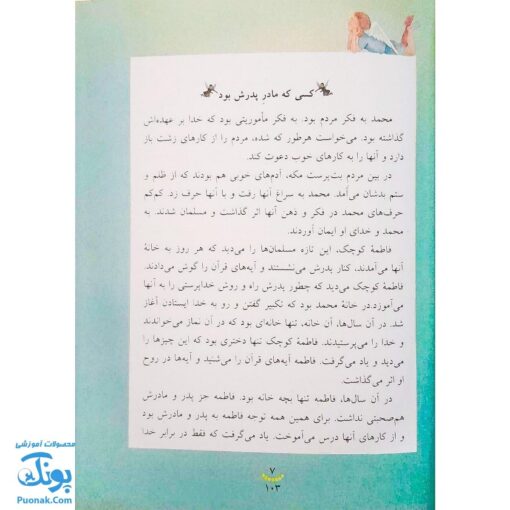 کسی که مادرِ پدرش بود
محمد به فکر مردم بود. به فکر مأموریتی بود که خدا بر عهده‌اش
گذاشته بود. می‌خواست هرطور که شده، مردم را از کارهای زشت باز
دارد و آنها را به کارهای خوب دعوت کند.
در بین مردم بت‌پرست مکه، آدم‌های خوبی هم بودند که از ظلم و
ستم بدشان می‌آمد. محمد به سراغ آنها رفت و با آنها حرف زد. کم‌کم
حرف‌های محمد در فکر و ذهن آنها اثر گذاشت و مسلمان شدند. به
محمد و خدای او ایمان آوردند.
فاطمهٔ کوچک، این تازه مسلمان‌ها را می‌دید که هر روز به خانهٔ
آنها می‌آمدند، کنار پدرش می‌نشستند و آیه‌های قرآن را گوش می‌دادند.
فاطمهٔ کوچک می‌دید که چطور پدرش راه و روش خداپرستی را به آنها
می‌آموزد.در خانهٔ محمد بود که تکبیر گفتن و رو به خدا ایستادن آغاز
شد. در آن سال‌ها، آن خانه، تنها خانه‌ای بود که در آن نماز می‌خواندند
و خدا را می‌پرستیدند. فاطمهٔ کوچک تنها دختری بود که این چیزها را
می‌دید و یاد می‌گرفت. فاطمه آیه‌های قرآن را می‌شنید و آیه‌ها در روح
او اثر می‌گذاشت.
در آن سال‌ها، فاطمه تنها بچه خانه بود. فاطمه جز پدر و مادرش
هم‌صحبتی نداشت. برای همین همه توجه فاطمه به پدر و مادرش بود
و از کارهای آنها درس می‌آموخت. یاد می‌گرفت که فقط در برابر خدا
۷
۱۰۳
محصولات آموزشی
پونک
Puonak.Com